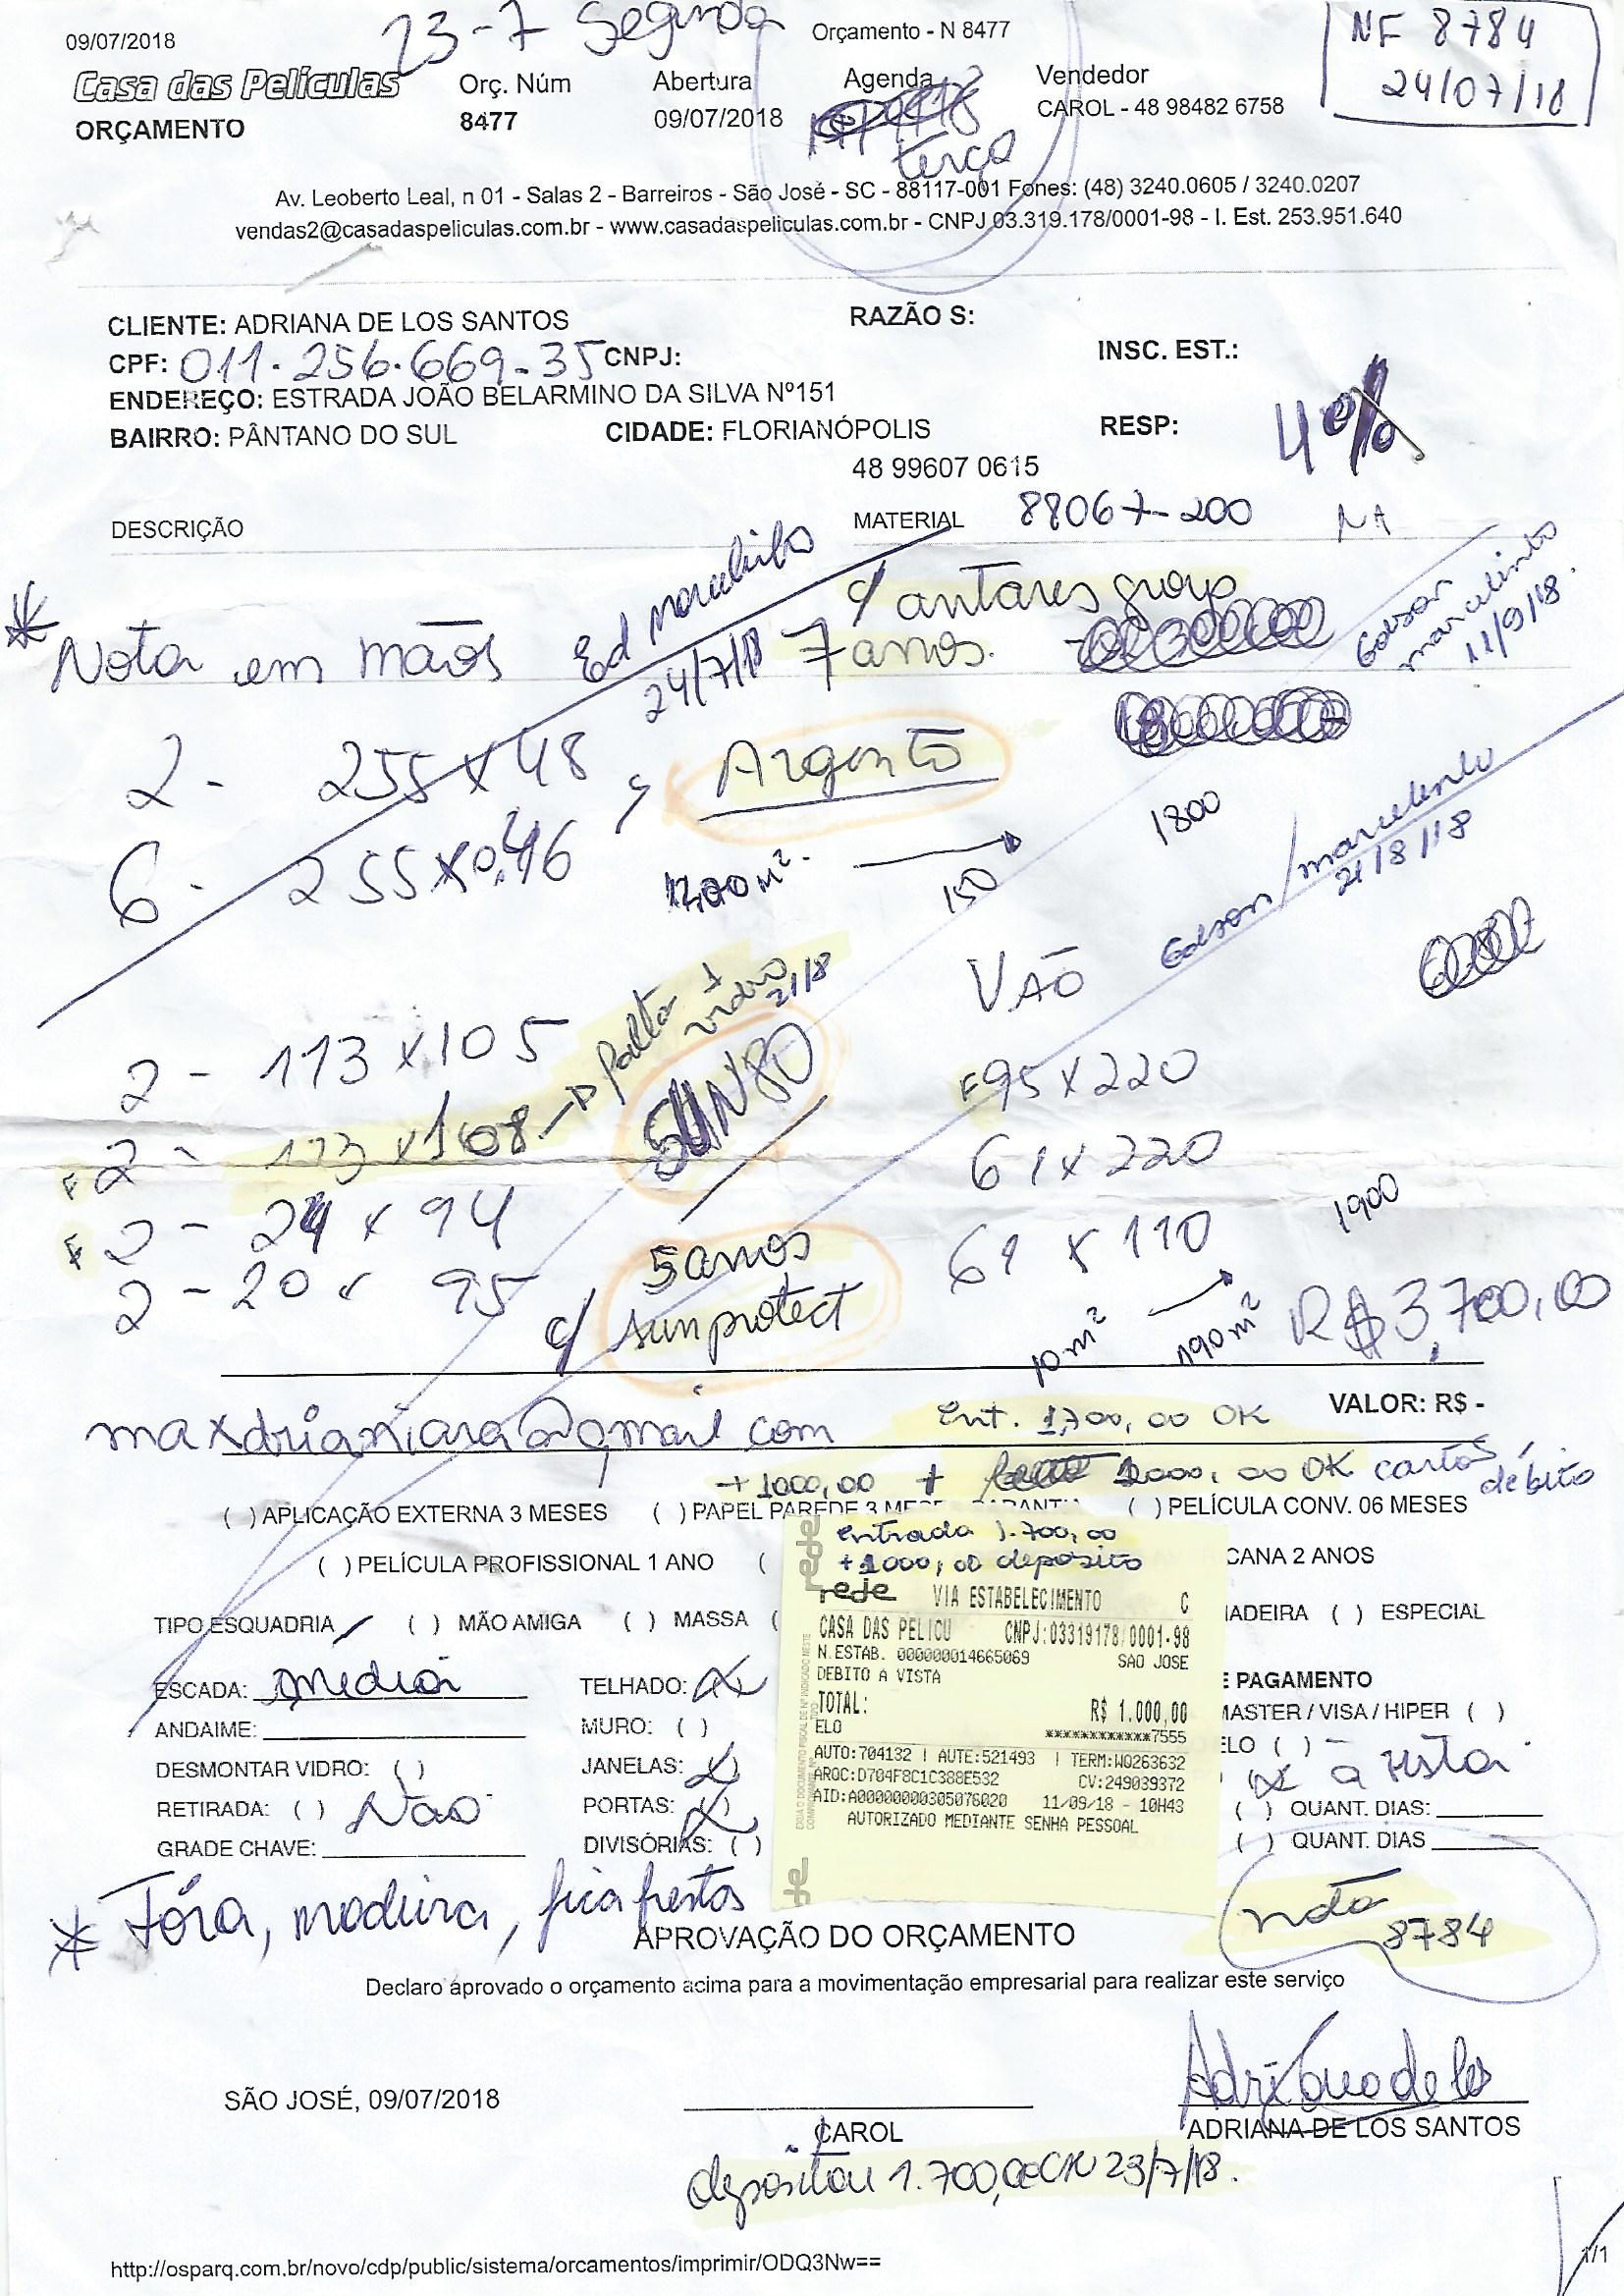 09/07/2018
23-7 Segunda
Orçamento - N 8477
NF 8784
24/07/18
Casa das Películas
ORÇAMENTO
Orç. Núm
8477
Abertura
09/07/2018
Agenda
terça
Vendedor
CAROL - 48 98482 6758
Av. Leoberto Leal, n 01 - Salas 2 - Barreiros - São José - SC - 88117-001 Fones: (48) 3240.0605 / 3240.0207
vendas2@casadaspeliculas.com.br - www.casadaspeliculas.com.br - CNPJ 03.319.178/0001-98 - I. Est. 253.951.640
CLIENTE: ADRIANA DE LOS SANTOS
RAZÃO S:
CPF: 011.256.669-35 CNPJ:
INSC. EST.:
ENDEREÇO: ESTRADA JOÃO BELARMINO DA SILVA Nº151
BAIRRO: PÂNTANO DO SUL
CIDADE: FLORIANÓPOLIS
RESP:
4%
48 99607 0615
DESCRIÇÃO
MATERIAL 88067-200
NA
* Nota em mãos
24/7/18
c/ antares group
7 anos.
Gelson
marcelinho
11/9/18.
2 - 255x48
Argento
6 - 255x0,46
150
1800
Gelson / marcelinho
21/8/18
VÃO
2 - 113x105
F 2 - 113x108 → falta 1 vidro 21/8
F 2 - 24x94
2 - 20x95
SUN80
5 anos
c/ sunprotect
F 95x220
61x220
61x110
1900
10m² → 190m²
R$ 3,700,00
VALOR: R$ -
ent. 1,700,00 OK
+1000,00 + 1000,00 OK cartão débito
( ) APLICAÇÃO EXTERNA 3 MESES
( ) PAPEL PAREDE 3 MESES GARANTIA
( ) PELÍCULA CONV. 06 MESES
( ) PELÍCULA PROFISSIONAL 1 ANO
(
CANA 2 ANOS
TIPO ESQUADRIA ( ) MÃO AMIGA ( ) MASSA (
ADEIRA ( ) ESPECIAL
entrada 1.700,00
+1000,00 deposito
rede
rede
VIA ESTABELECIMENTO C
CASA DAS PELICU CNPJ:03319178/0001-98
N.ESTAB. 000000014665069 SAO JOSE
DEBITO A VISTA
TOTAL: R$ 1.000,00
ELO ************7555
AUTO:704132 | AUTE:521493 | TERM:WQ263632
ARQC:D704F8C1C388E532 CV:249039372
AID:A0000000305076020 11/09/18 - 10H43
AUTORIZADO MEDIANTE SENHA PESSOAL
ESCADA: media
ANDAIME:
DESMONTAR VIDRO: ( )
RETIRADA: ( ) Não
GRADE CHAVE:
TELHADO: (x)
MURO: ( )
JANELAS: (x)
PORTAS: (x)
DIVISÓRIAS: ( )
E PAGAMENTO
MASTER / VISA / HIPER ( )
ELO ( )
(x) a vista
( ) QUANT. DIAS:
( ) QUANT. DIAS
* Fóra, madeira, fica frestas
nota
8784
APROVAÇÃO DO ORÇAMENTO
Declaro aprovado o orçamento acima para a movimentação empresarial para realizar este serviço
SÃO JOSÉ, 09/07/2018
CAROL
ADRIANA DE LOS SANTOS
depositou 1.700,00 OK 23/7/18.
http://osparq.com.br/novo/cdp/public/sistema/orcamentos/imprimir/ODQ3Nw==
1/1